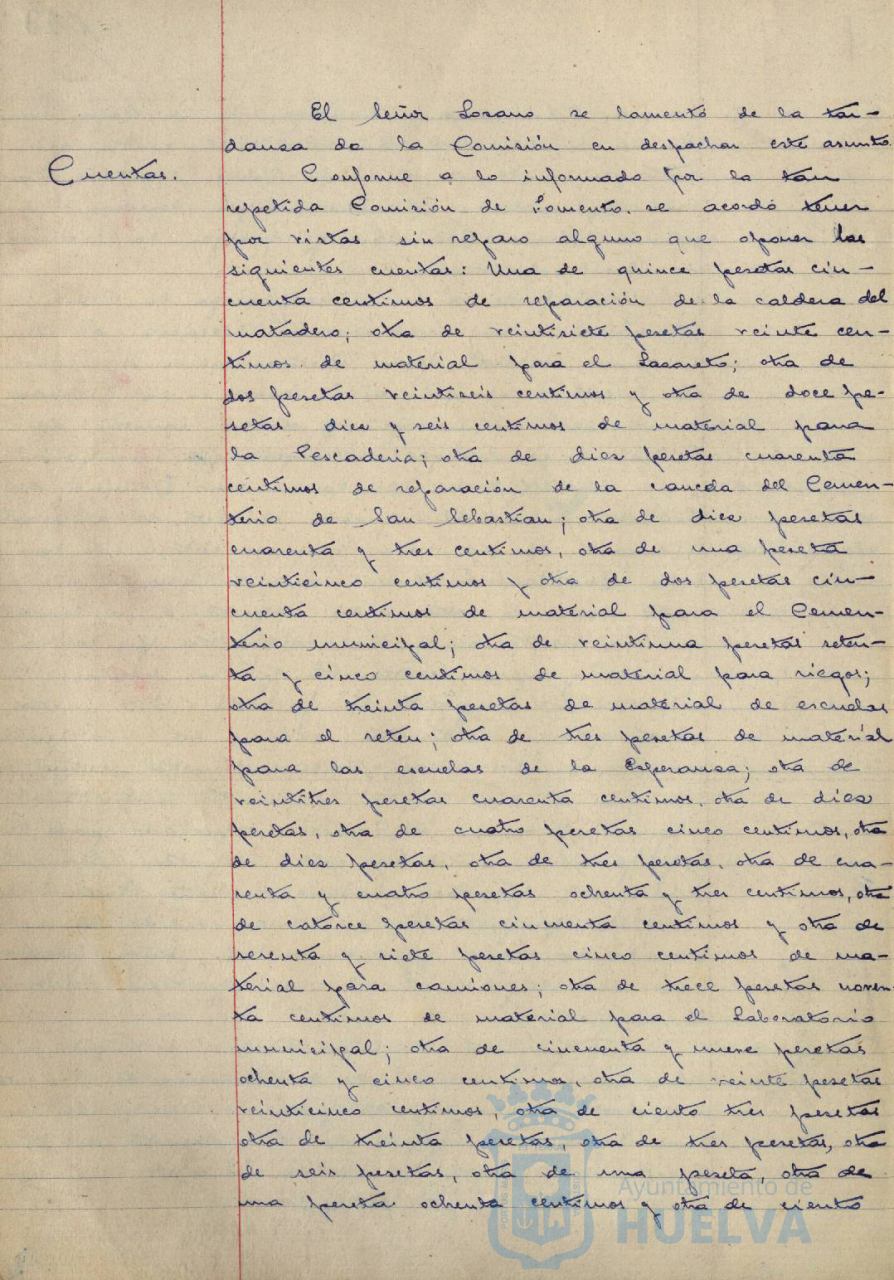 El Señor Lozano se lamentó de la tar-
danza de la Comisión en despachar este asunto.
Cuentas.
Conforme a lo informado por la tan
repetida Comisión de Fomento, se acordó tener
por vistas sin reparo alguno que oponer las
siguientes cuentas: Una de quince pesetas cin-
cuenta centimos de reparación de la caldera del
matadero; otra de veintisiete pesetas veinte cen-
timos de material para el Lazareto; otra de
dos pesetas veintiseis centimos y otra de doce pe-
setas diez y seis centimos de material para
la Pescaderia; otra de diez pesetas cuarenta
centimos de reparación de la cancela del Cemen-
terio de San Sebastian; otra de diez pesetas
cuarenta y tres centimos, otra de una peseta
veinticinco centimos y otra de dos pesetas cin-
cuenta centimos de material para el Cemen-
terio municipal; otra de veintiuna pesetas seten-
ta y cinco centimos de material para riegos;
otra de treinta pesetas de material de escuelas
para el reten; otra de tres pesetas de material
para las escuelas de la Esperanza; otra de
veintitres pesetas cuarenta centimos, otra de diez
pesetas, otra de cuatro pesetas cinco centimos, otra
de diez pesetas, otra de tres pesetas, otra de cua-
renta y cuatro pesetas ochenta y tres centimos, otra
de catorce pesetas cincuenta centimos y otra de
sesenta y siete pesetas cinco centimos de ma-
terial para camiones; otra de trece pesetas noven-
ta centimos de material para el Laboratorio
municipal; otra de cincuenta y nueve pesetas
ochenta y cinco centimos, otra de veinte pesetas
veinticinco centimos, otra de ciento tres pesetas
otra de treinta pesetas, otra de tres pesetas, otra
de seis pesetas, otra de una peseta, otra de
una peseta ochenta centimos y otra de ciento
Ayuntamiento de
HUELVA